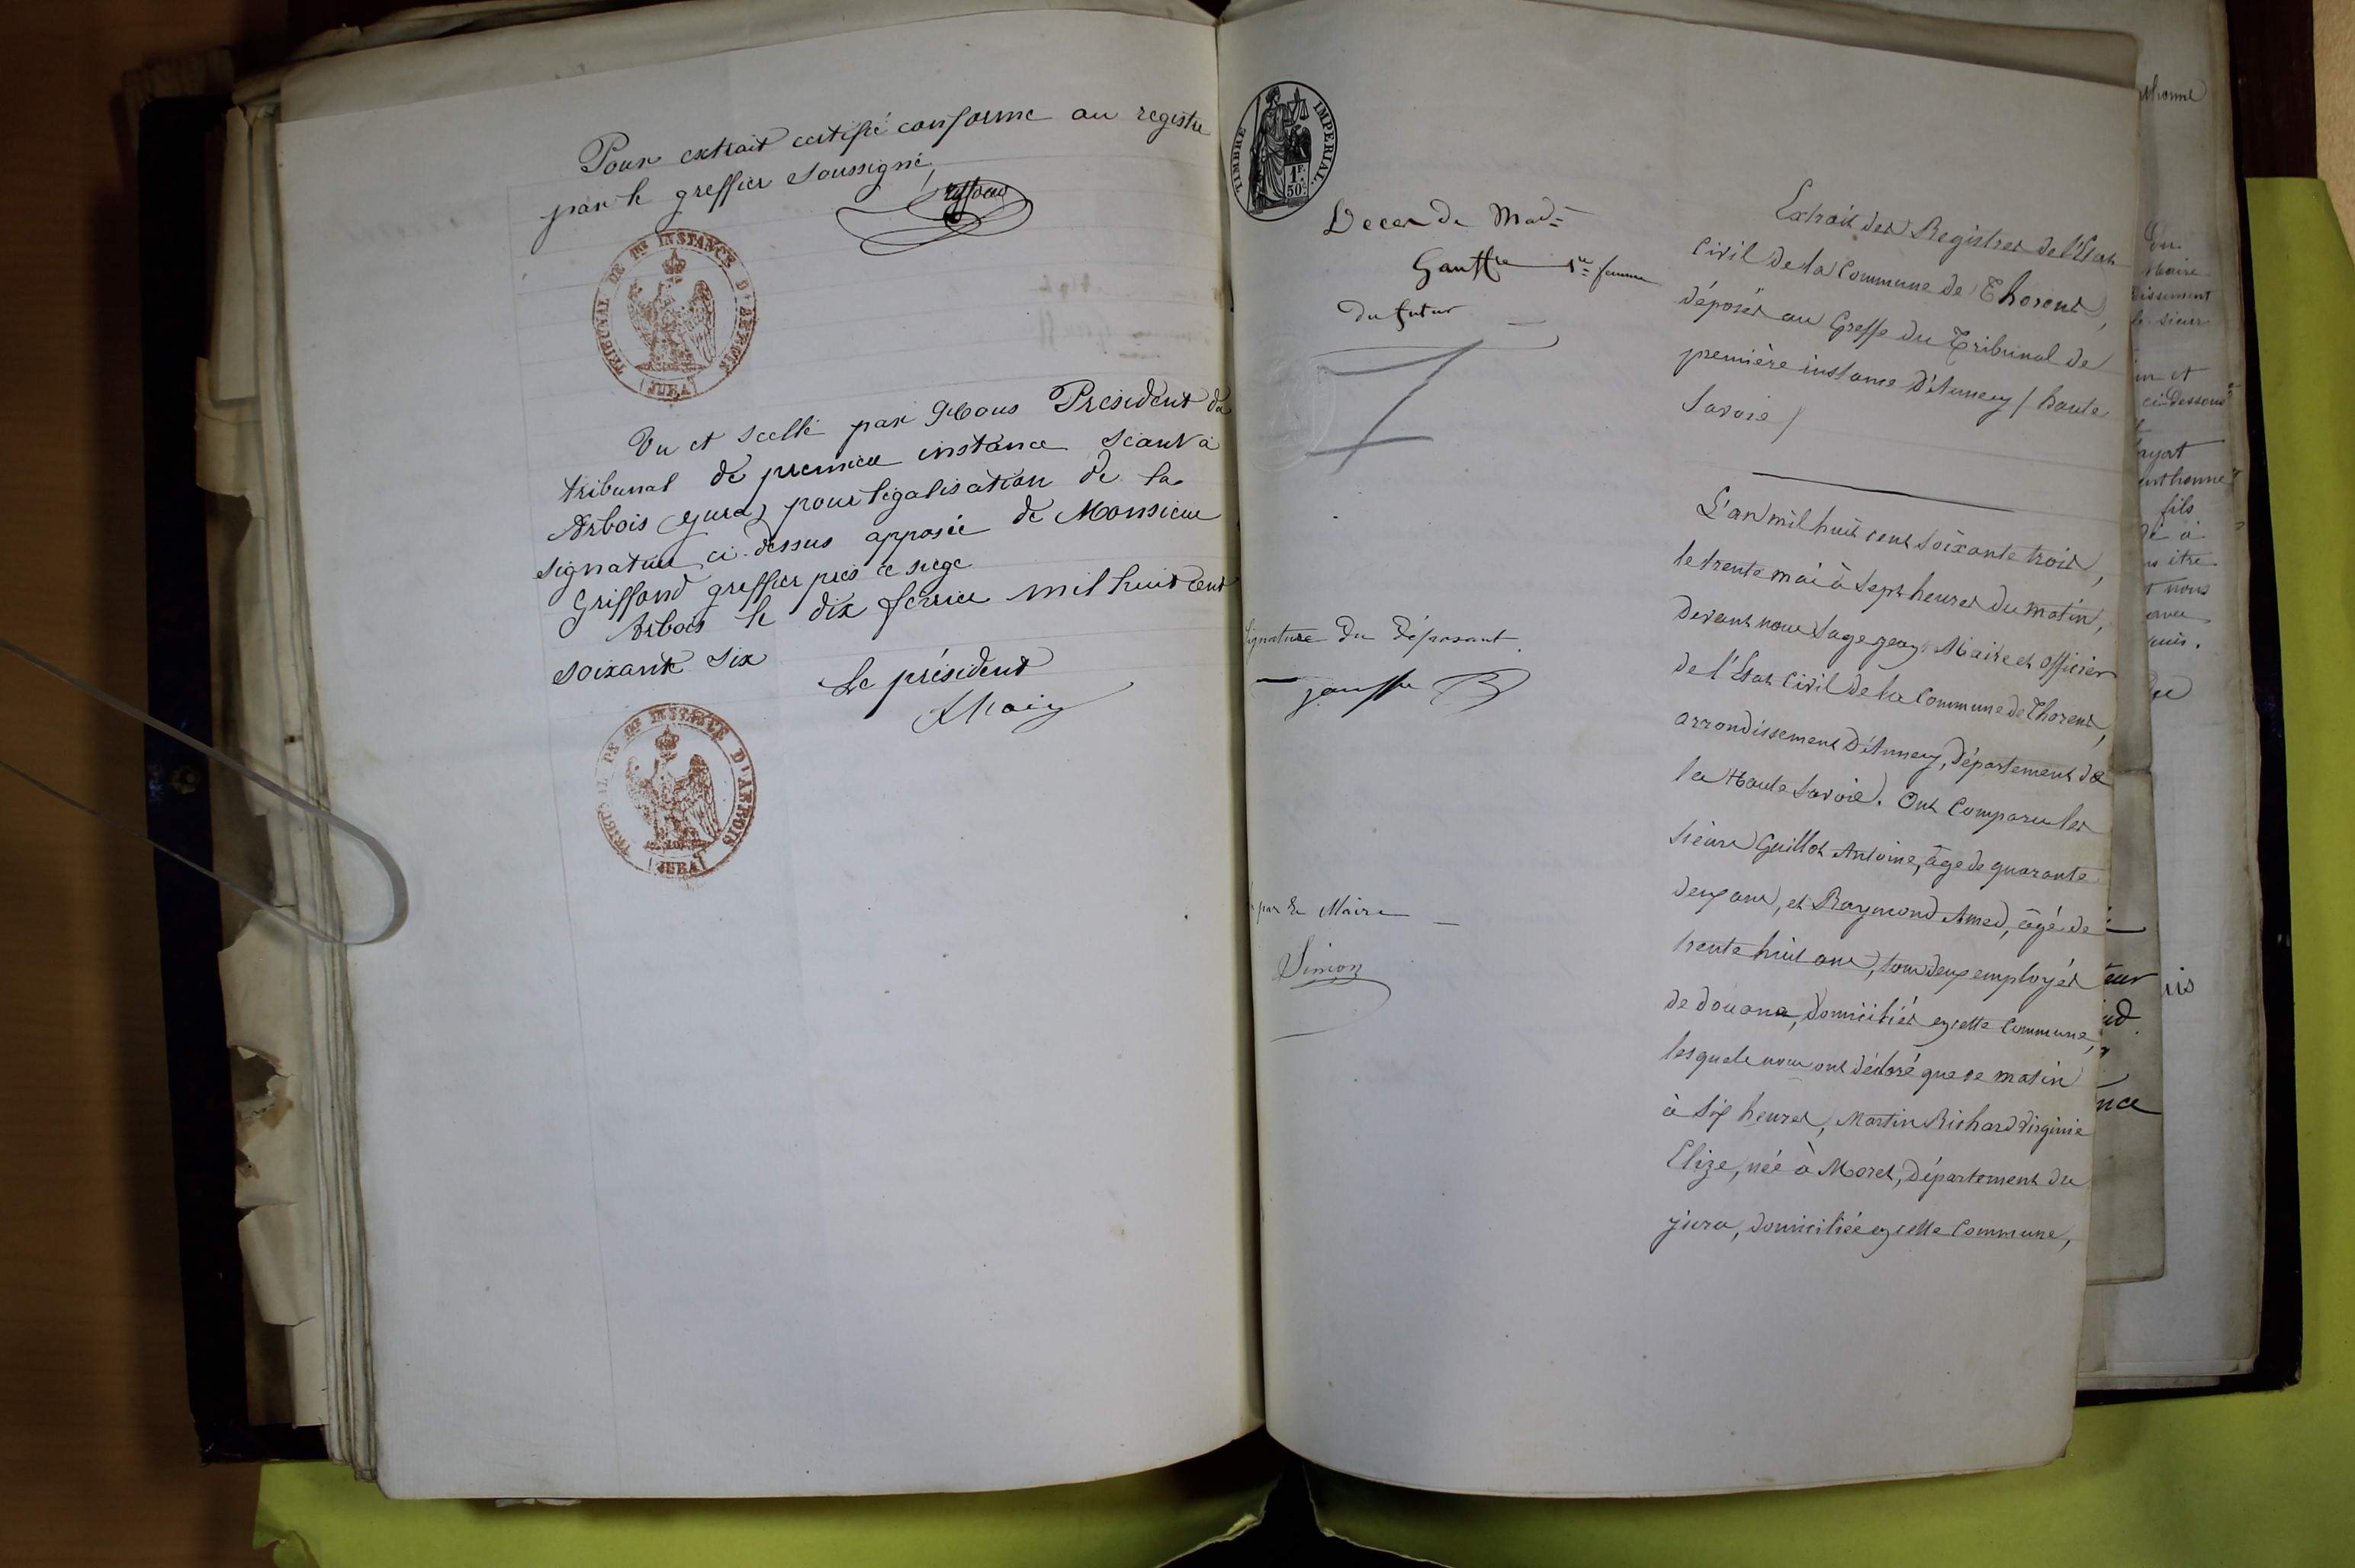 Pour extrait certifié conforme au registre
par le greffier soussigné,
TRIBUNAL DE 1re INSTANCE D'ARBOIS
(JURA)
Vu et scellé par Nous Président du
tribunal de première instance séant à
Arbois (Jura) pour légalisation de la
signature ci-dessus apposée de Monsieur
Griffond greffier près ce siège
Arbois le dix février mil huit cent
soixante six
Le président
TRIBUNAL DE 1re INSTANCE D'ARBOIS
(JURA)
TIMBRE IMPERIAL
1F.
50c
Deces de Made
Gauffre 1ere femme
du futur
Signature du déposant.
par le Maire
Simon
Extrait des Registres de l'Etat
Civil de la Commune de Thorens,
déposés au Greffe du Tribunal de
première instance d'Annecy (haute
Savoie)
L'an mil huit cent soixante trois,
le trente mai à sept heures du matin,
devant nous Sage Maire et officier
de l'Etat Civil de la Commune de Thorens,
arrondissement d'Annecy, département de
la Haute Savoie. Ont Comparu les
sieurs Guillot Antoine, âgé de quarante
deux ans, et Raymond Amed, âgé de
trente huit ans, tous deux employés
de douane, domiciliés en cette Commune,
lesquels nous ont déclaré que ce matin
à six heures, Martin Richard Virginie
Elize, née à Morez, département du
jura, domiciliée en cette Commune,
Du
Maire
le sieur
in et
ci-dessous
fils
à
être
nous
avec